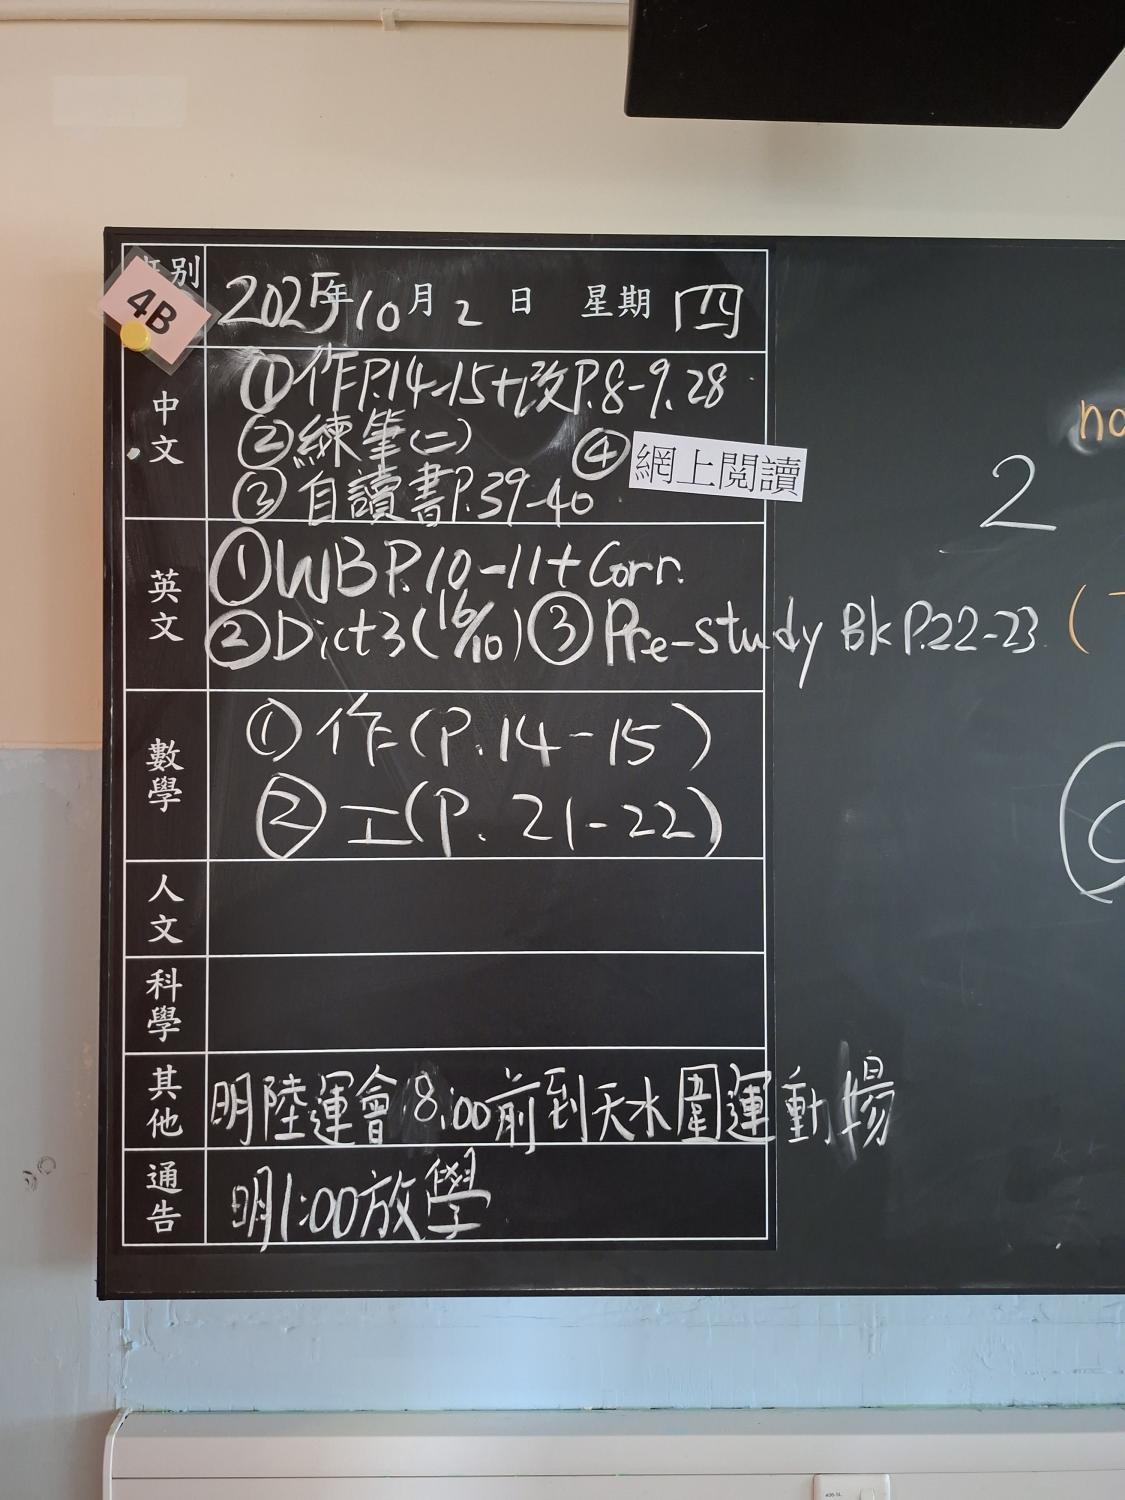 班別
4B
2025年10月2日 星期四
中文
①作P.14-15+改P.8-9.28
②練筆(二) ④網上閱讀
③自讀書P.39-40
英文
①WBP.10-11+Corr.
②Dict3(16/10)③Pre-study BkP.22-23
數學
①作(P.14-15)
②工(P.21-22)
人文
科學
其他
明陸運會8:00前到天水圍運動場
通告
明1:00放學
no
2